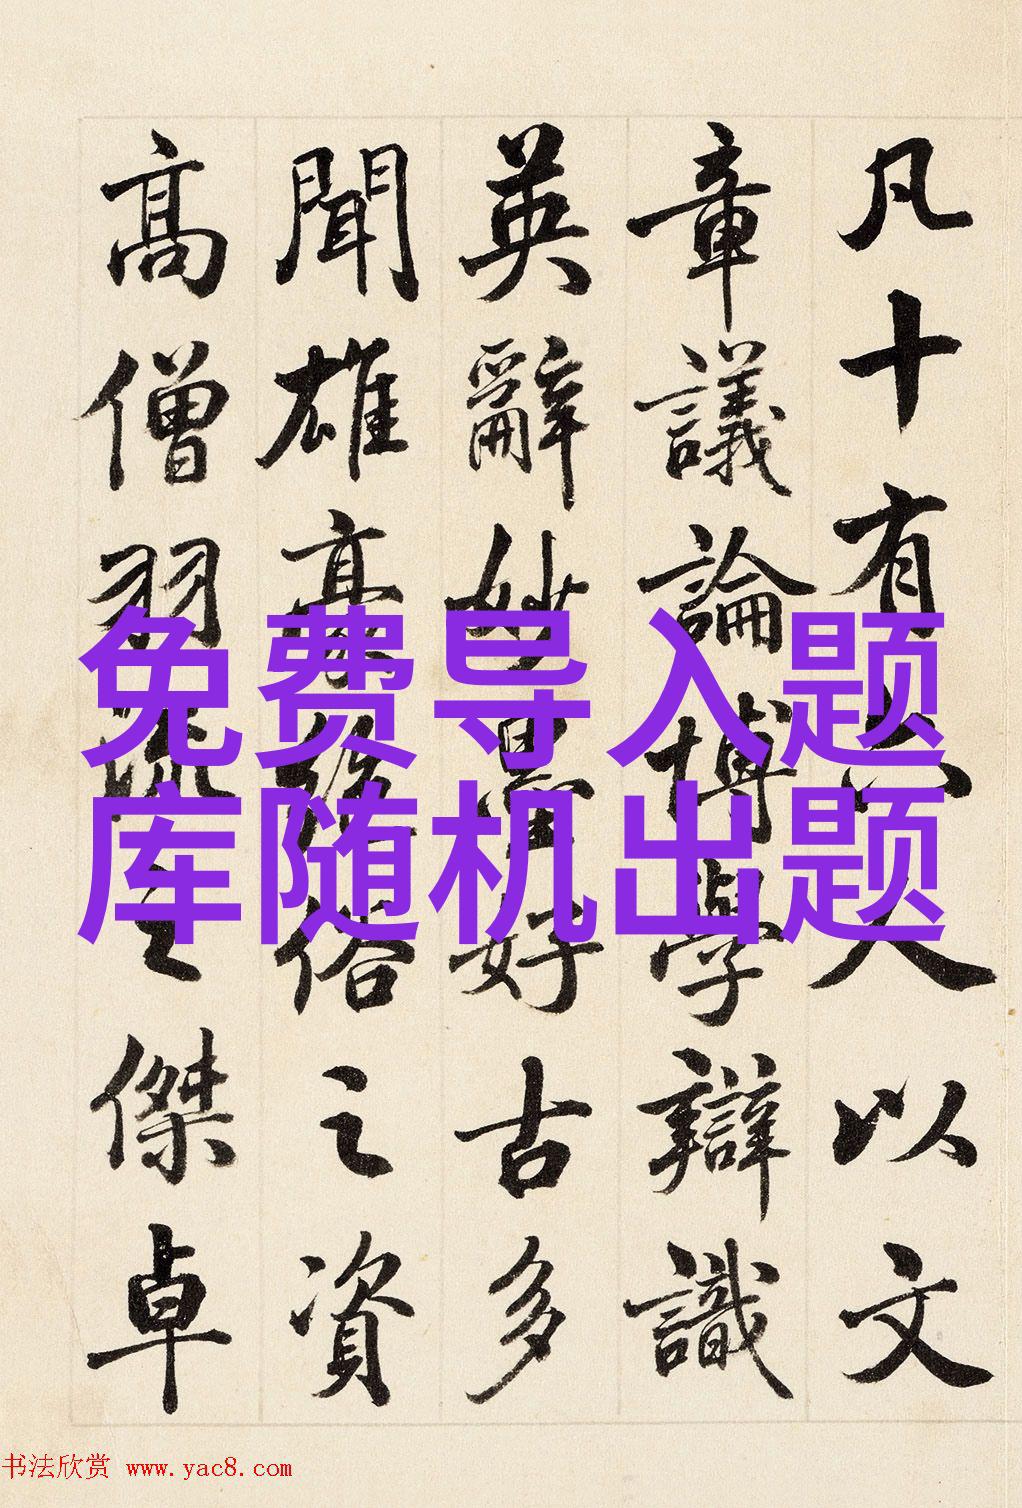 凡十有六人以文
章議論博學辯識
英辭妙墨好古多
聞雄豪絕俗之資
高僧羽流之傑卓
免费导入题
库随机出题
书法欣赏 www.yac8.com